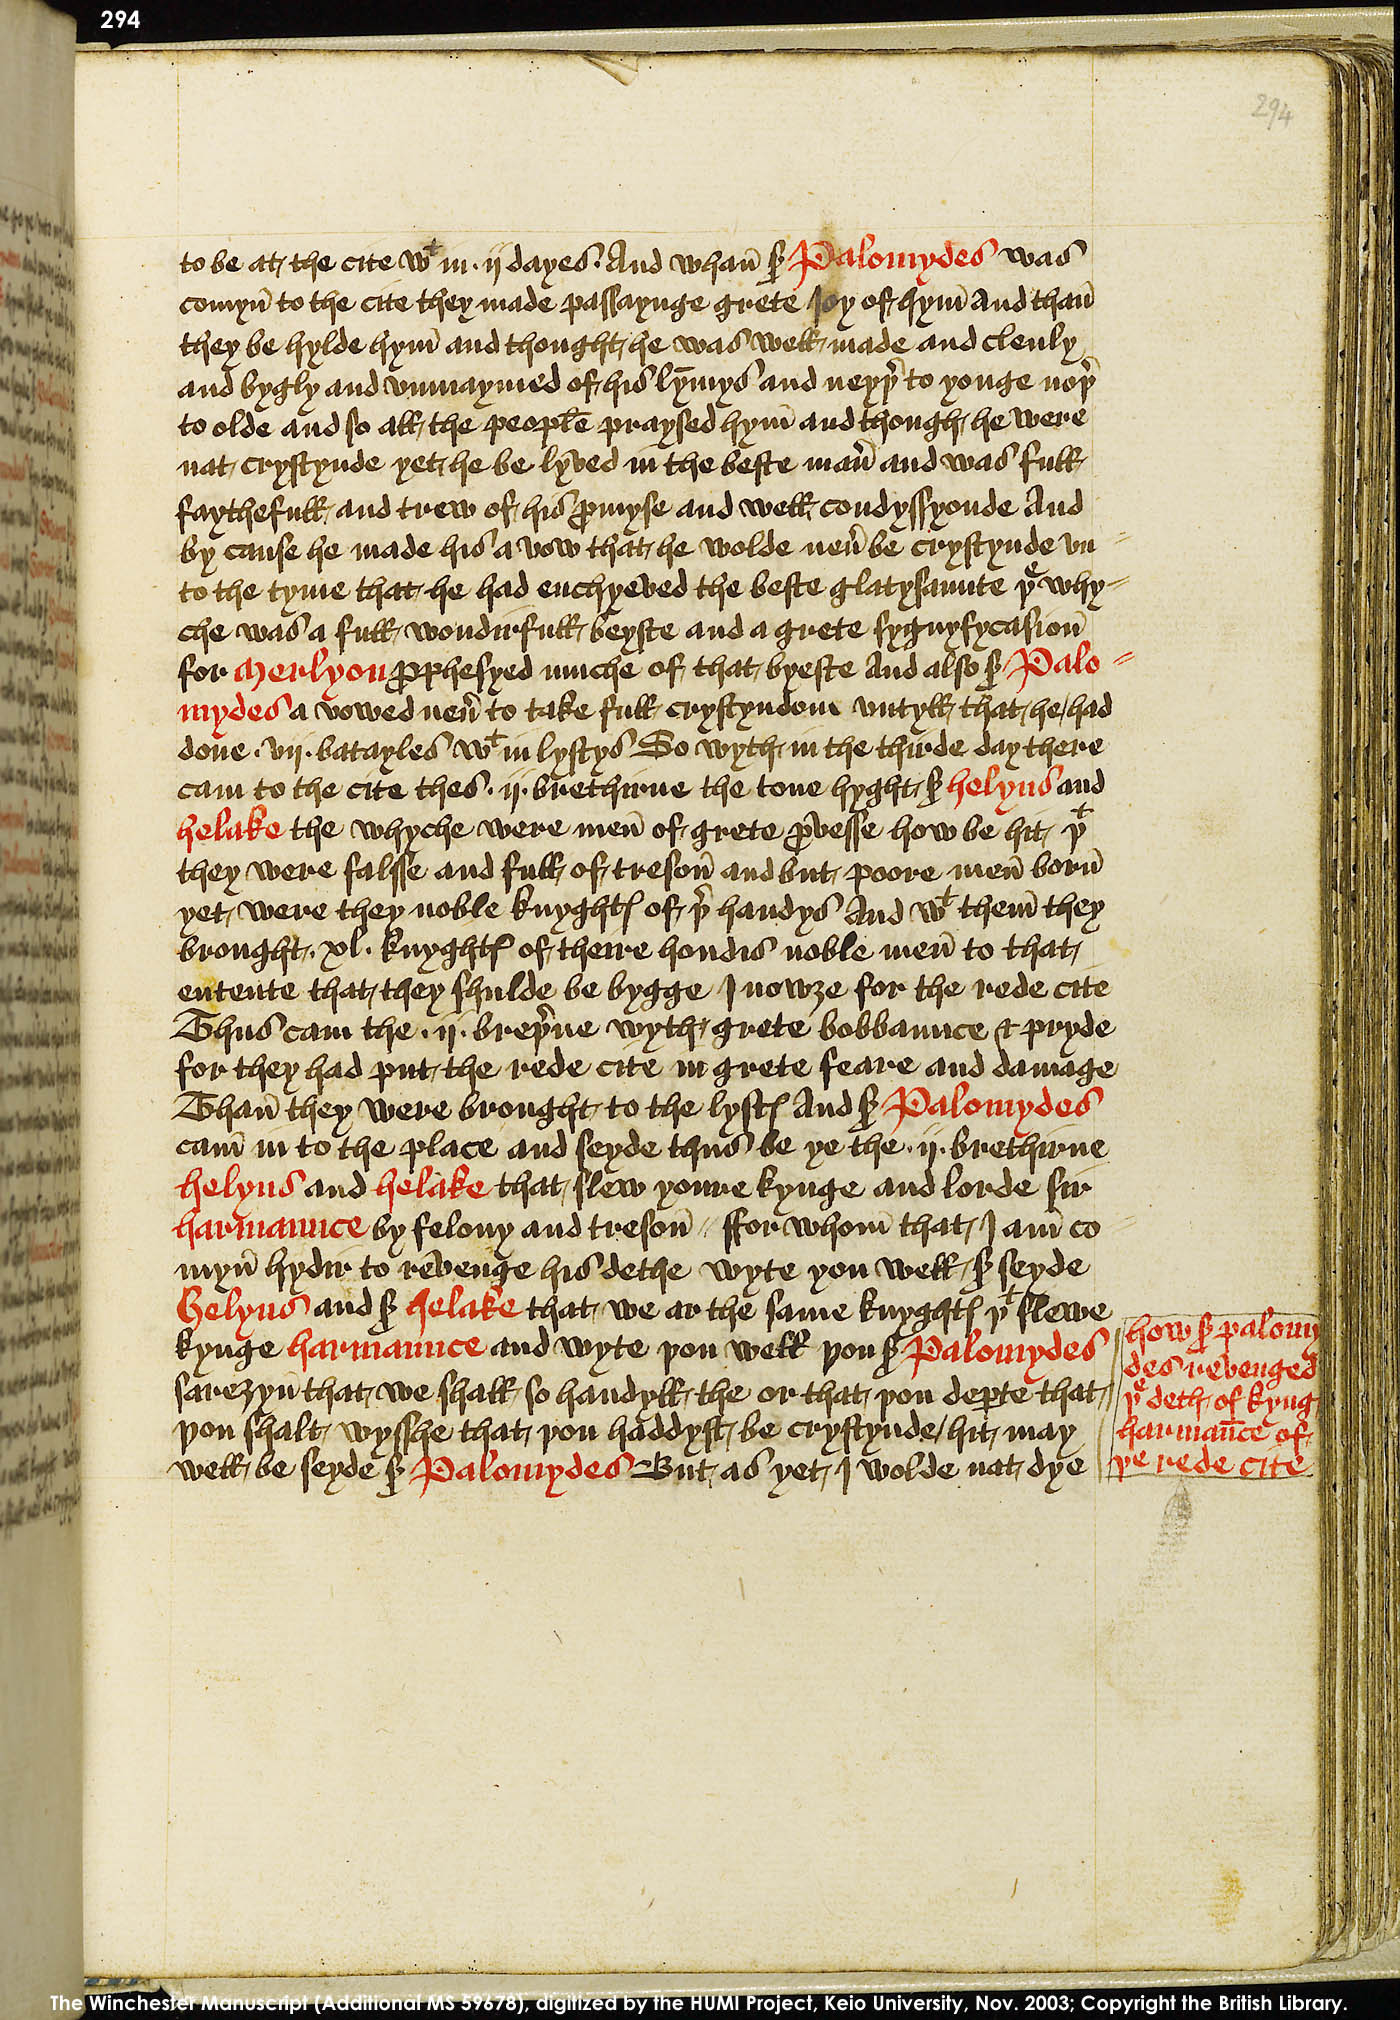 294
294
to be at the cite wᵗ in · ij dayes · And whan̄ sͬ Palomydes was
comyn̄ to the cite they made passaynge grete Joy of hym̄ And than̄
they be hylde hym̄ and thought he was well made and clenly
and bygly and vnmaymed of his lȳmys and neyþͬ to yonge noþͬ
to olde and so all the people praysed hym̄ and though he were
nat crystynde yet he be lyved in the beste man̄ and was full
faythefull and trew of his ꝓmyse and well condyssyonde And
by cause he made his a vow that he wolde neuͬ be crystynde vn
to the tyme that he had enchyeved the beste glatysaunte þͤ why
che was a full wondirfull beyste and a grete sygnyfycasion̄
for Merlyon ꝓphesyed muche of that byeste And also sͬ Palo
mydes a vowed neuͬ to take full crystyndom vntyll that he had
done · vij · batayles wᵗ in lystys So wyth in the thirde day there
cam to the cite thes · ij · brethirne the tone hyght sͬ helyus and
helake the whyche were men̄ of grete ꝓvesse how be hit þᵗ
they were falsse and full of treson̄ and but poore men̄ born̄
yet were they noble knyghtꝭ of þͬ handys And wᵗ them̄ they
brought · xl · knyghtꝭ of theire hondis noble men̄ to that
entente that they shulde be bygge I nowze for the rede cite
Thus cam the · ij · breþͬne wyth grete bobbaunce & pryde
for they had put the rede cite in grete feare and damage
Than̄ they were brought to the lystꝭ And sͬ Palomydes
cam̄ in to the place and seyde thus be ye the · ij · brethirne
helyus and helake that slew youre kynge and lorde sir
harmaunce by felony and treson̄ ffor whom̄ that I am̄ co
myn̄ hydir to revenge his dethe wyte you well sͬ seyde
Helyus and sͬ helake that we ar the same knyghtꝭ þᵗ slewe
kynge harmaunce and wyte þou well þou sͬ Palomydes
sarezyn̄ that we shall so handyll the or that þou deꝑte that
þou shalt wysshe that þou haddyst be crystynde / hit may
well be seyde sͬ Palomydes But as yet I wolde nat dye
how sͬ palomy
des revenged
þͤ deth of kyng
harman̄ce of
þe rede cite
The Winchester Manuscript (Additional MS 59678), digitized by the HUMI Project, Keio University, Nov. 2003; Copyright the British Library.